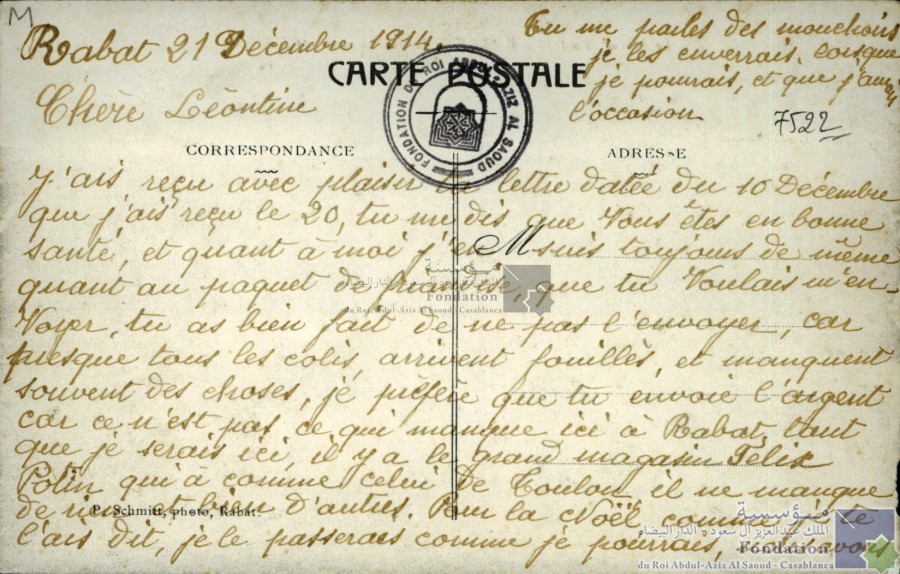 M
Rabat 21 Décembre 1914.
Tu me parles des mouchoirs
je les enverrais, lorsque
je pourrais, et que j'aurais
l'occasion
CARTE POSTALE
FONDATION DU ROI ABDUL AZIZ AL SAOUD
Chère Léontine
7522
CORRESPONDANCE
ADRESSE
J'ais reçu avec plaisir ta lettre datée du 10 Décembre
que j'ais reçu le 20, tu me dis que Vous êtes en bonne
santé, et quant à moi j'en suis toujours de même
M
quant au paquet de friandise, que tu Voulais m'en-
Voyer, tu as bien fait de ne pas l'envoyer, car
presque tous les colis, arrivent fouillés, et manquent
souvent des choses, je préfère que tu envoie l'argent
car ce n'est pas ce qui manque ici à Rabat, tant
que je serais ici, il y a le grand magasin Félix
Potin qui à comme celui de Toulon il ne manque
de rien et bien d'autres. Pour la Noël comme je te
l'ais dit, je le passerais comme je pourrais, nous avons
P. Schmitt, photo, Rabat.
مؤسسة
الملك عبد العزيز آل سعود - الدار البيضاء
Fondation
du Roi Abdul-Aziz Al Saoud - Casablanca
مؤسسة
الملك عبد العزيز آل سعود - الدار البيضاء
Fondation
du Roi Abdul-Aziz Al Saoud - Casablanca